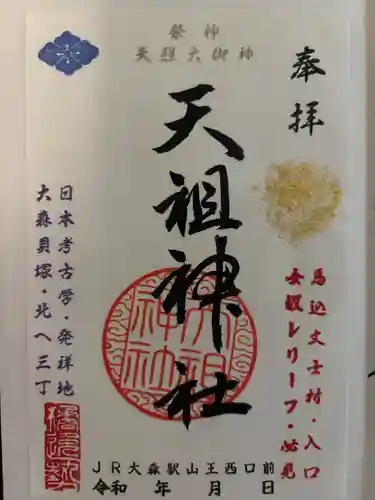 奉拝
祭神
天照大御神
天祖神社
天祖神社
馬込文士村・入口
女優レリーフ・必見
日本考古学・発祥地
大森貝塚・北へ三丁
JR大森駅山王西口前
令和 年 月 日